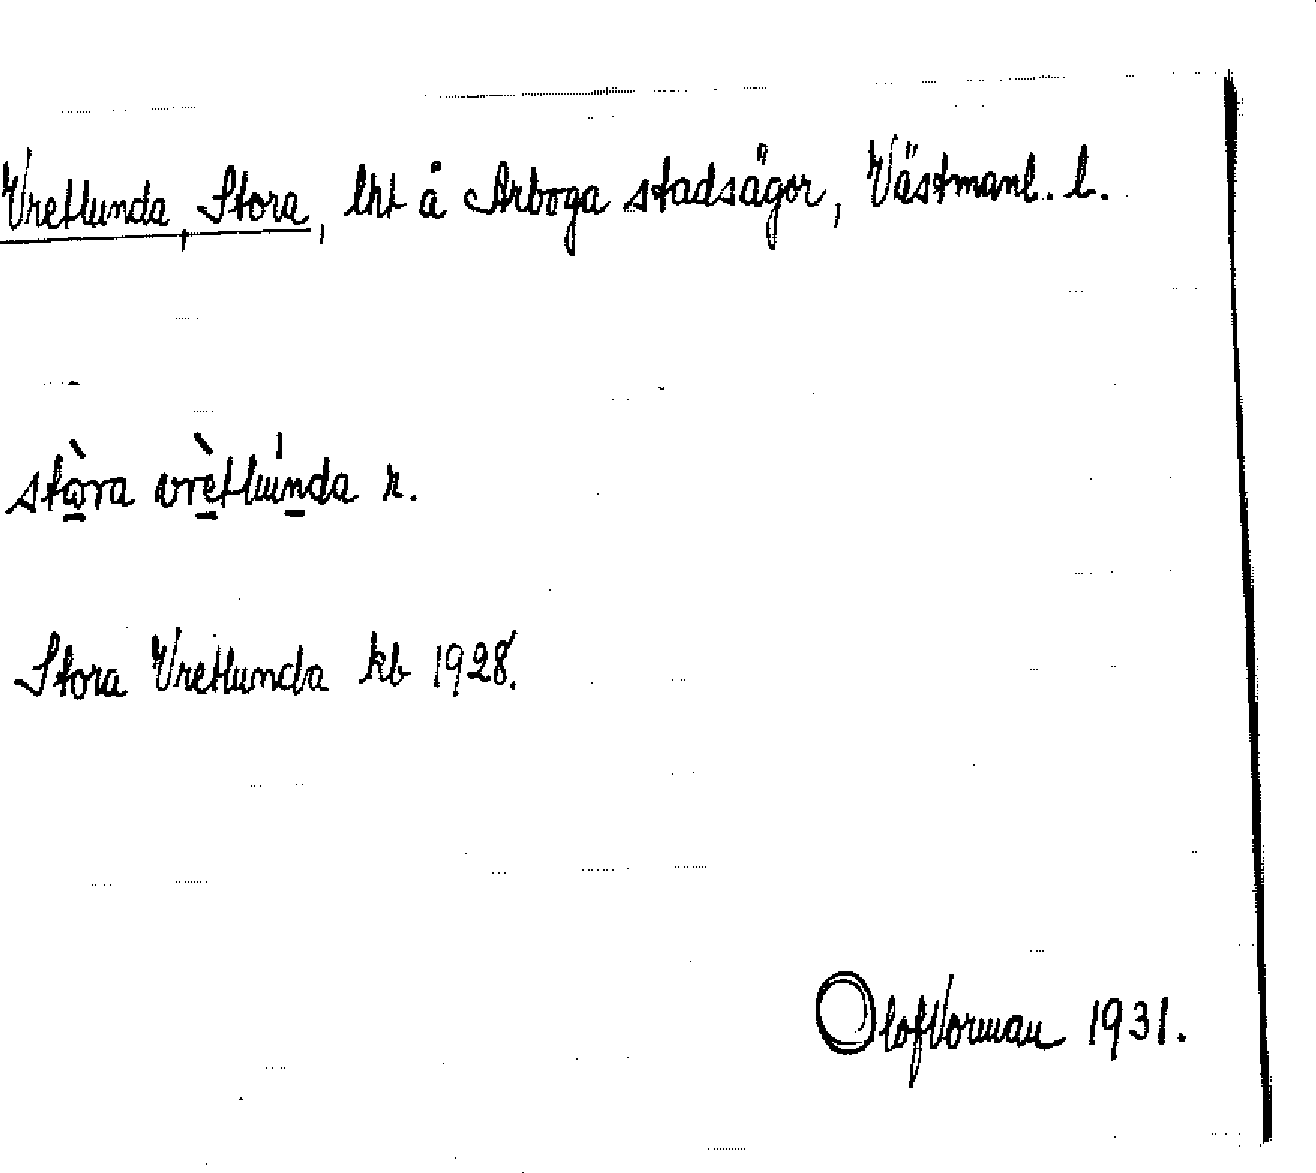 Vretlunda, Stora, lht å Arboga stadsägor, Västmanl. l.
stòra vrètlúnda n.
Stora Vretlunda kb 1928.
Olof Vorman 1931.